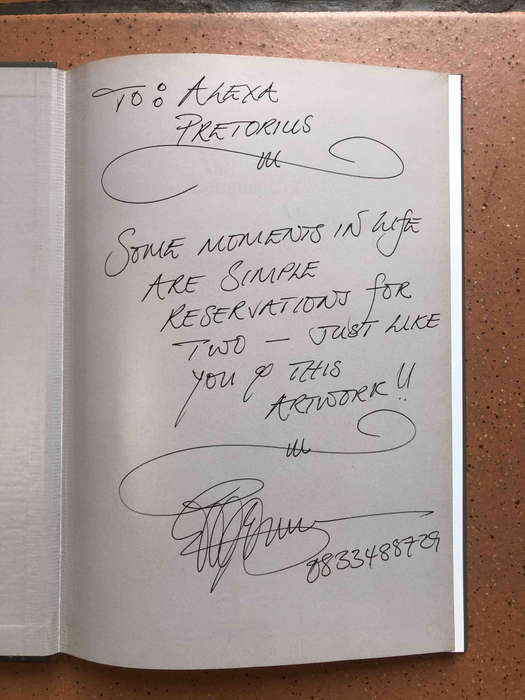 TO: ALEXA
PRETORIUS
SOME MOMENTS IN LIFE
ARE SIMPLE
RESERVATIONS FOR
TWO — JUST LIKE
YOU & THIS
ARTWORK!!
0833488729